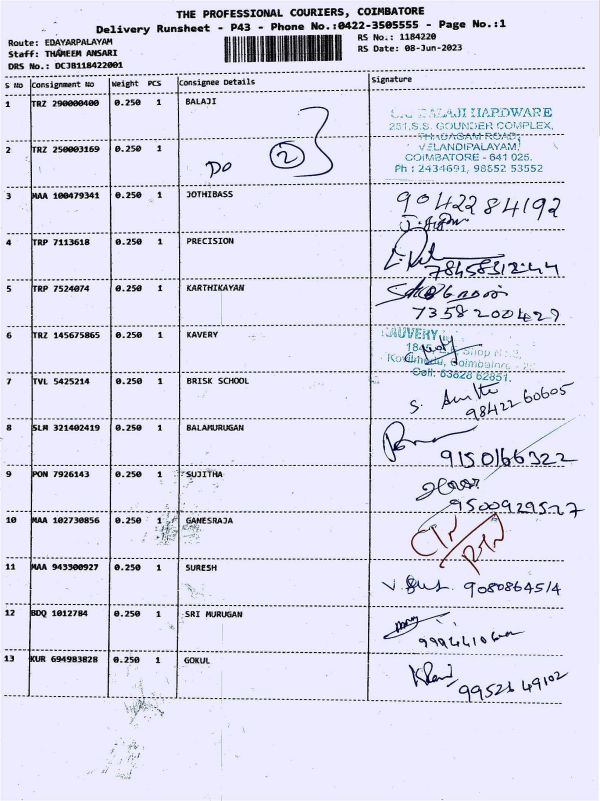 THE PROFESSIONAL COURIERS, COIMBATORE
Delivery Runsheet - P43 - Phone No.:0422-3505555 - Page No.:1
Route: EDAYARPALAYAM RS No.: 1184220
Staff: THAMEEM ANSARI RS Date: 08-Jun-2023
DRS No.: DCJB118422001
S No Consignment No Weight PCS Consignee Details Signature
1 TRZ 290000400 0.250 1 BALAJI
BALAJI HARDWARE
251,S.S. GOUNDER COMPLEX,
THADAGAM ROAD,
VELANDIPALAYAM,
COIMBATORE - 641 025.
Ph : 2434691, 98652 53552
2 TRZ 250003169 0.250 1 DO 2
3 MAA 100479341 0.250 1 JOTHIBASS 9042284192
4 TRP 7113618 0.250 1 PRECISION
5 TRP 7524074 0.250 1 KARTHIKAYAN 7358200429
6 TRZ 145675865 0.250 1 KAVERY KAUVERY
Cell: 63828 62851.
7 TVL 5425214 0.250 1 BRISK SCHOOL 9842260605
8 SLM 321402419 0.250 1 BALAMURUGAN 9150166322
9 PON 7926143 0.250 1 SUJITHA 9500929527
10 MAA 102730856 0.250 1 GANESRAJA
11 MAA 943300927 0.250 1 SURESH 9080864514
12 BDQ 1012784 0.250 1 SRI MURUGAN
13 KUR 694983828 0.250 1 GOKUL 9952649102